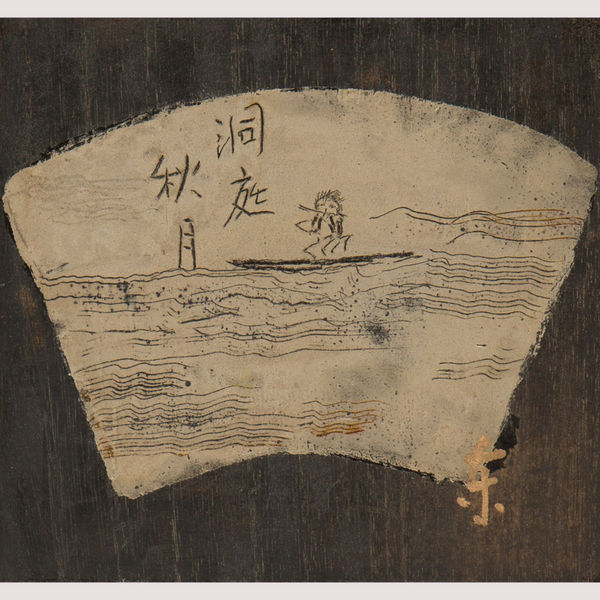 洞庭
秋月